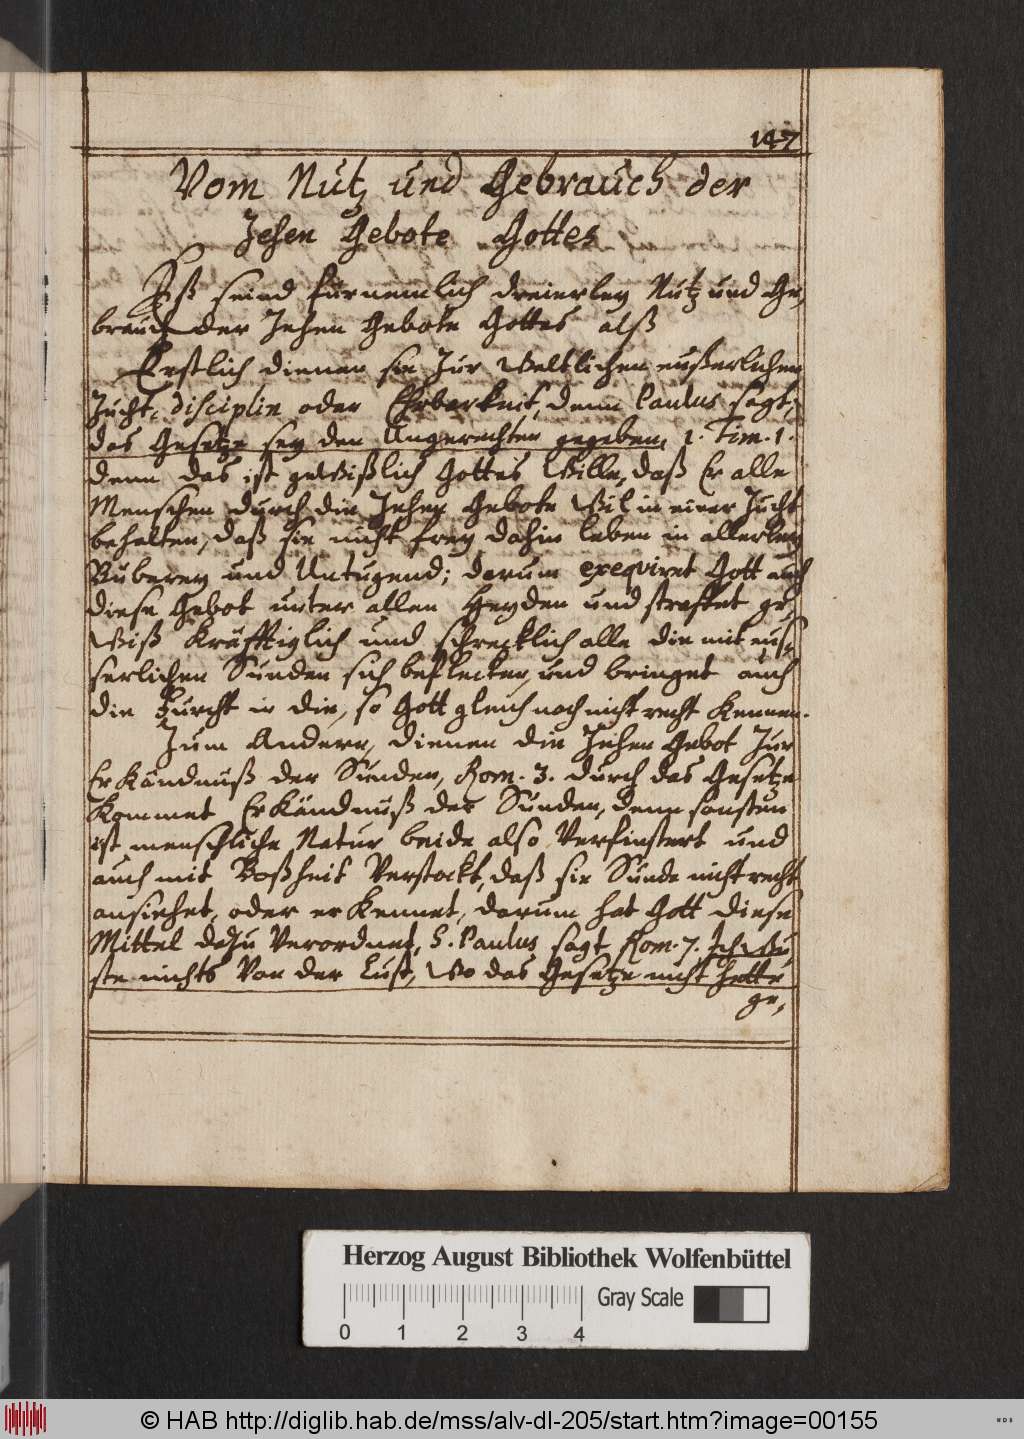 147
Vom Nutz und Gebrauch der
Zehen Gebote Gottes
Eß seind fürnemlich dreierley Nutz und Ge,
brauch der Zehen Gebote Gottes alß
Erstlich dienen sie zur Weltlichen eußerlichen
Zucht, disciplin oder Ehrbarkeit, denn Paulus sagt,
das Gesetze sey den Ungerechten gegeben, 1. Tim. 1.
denn das ist gewißlich Gottes Wille, daß Er alle
Menschen durch die Zehen Gebote Wil in einer Zucht
behalten, daß sie nicht frey dahin leben in allerley
Büberey und Untugend; darum exequiret Gott auch
diese Gebot unter allen Heyden und straffet ge,
wiß kräfftiglich und schrecklich alle die mit eus,
serlichen Sünden sich beflecken, und bringet auch
die Furcht in die, so Gott gleich noch nicht recht kennen.
Zum Andern, dienen die Zehen Gebot zur
Erkändnüß der Sünden, Rom. 3. durch das Gesetze
kommet Erkändnüß der Sünden, denn sonsten
ist menschliche Natur beide also Verfinstert und
auch mit Boßheit Verstockt, daß sie Sünde nicht recht
ansiehet, oder erkennet, darum hat Gott diese
Mittel dazu Verordnet, S. Paulus sagt Rom. 7. Ich Wu,
ste nichts Von der Lust, Wo das Gesetze nicht hette
ge,
Herzog August Bibliothek Wolfenbüttel
Gray Scale
0 1 2 3 4
© HAB http://diglib.hab.de/mss/alv-dl-205/start.htm?image=00155